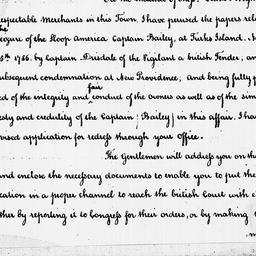 respectable Merchants in this Town, I have perused the papers rela
the
seizure of the Sloop America Captain Bailey, at Turks Island. 
5th 1786. by Captain Drisdale of the Vigilant a british Tender, an
subsequent condemnation at New Providence; and being fully p
fair
ed of the integrity and conduct of the owners as well as of the sim
esty and credulity of the Captain (Bailey) in this affair. I ha
vised application for redress through your Office.
The Gentlemen will address you on th
and enclose the necessary documents to enable you to put the
cation in a proper channel to reach the british Court with e
ther by reporting it to Congress for their orders, or by making